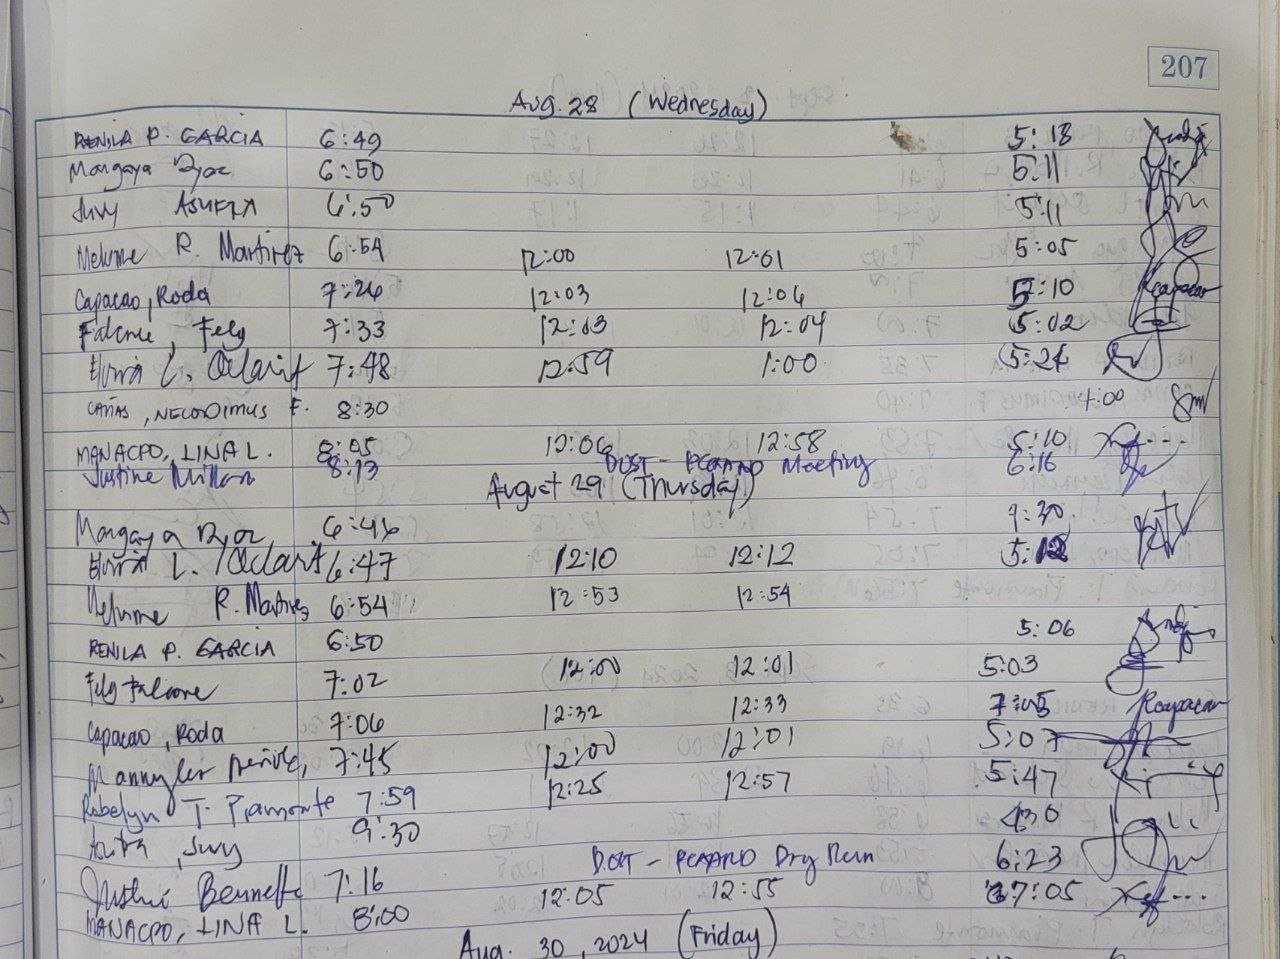 207
Aug. 28 (Wednesday)
RENILA P. GARCIA 6:49 5:13
Margaya 6:50 5:11
Juvy 6:50 5:11
Melume R. Martinez 6:54 12:00 12:01 5:05
Capacao, Roda 7:26 12:03 12:04 5:10 Rcapacao
Falcone, Fely 7:33 12:03 12:04 5:02
L. 7:48 12:59 1:00 5:24
CAÑAS, NECODIMUS F. 8:30 4:00
MANACPO, LINA L. 8:05 12:06 12:58 5:10
Justine 8:13 DOST - PCAARRD Meeting 6:16
August 29 (Thursday)
Margaya 6:46
L. 6:47 12:10 12:12 5:12
Melume R. Martinez 6:54 12:53 12:54
RENILA P. GARCIA 6:50 5:06
Fely Falcone 7:02 12:00 12:01 5:03
Capacao, Roda 7:06 12:32 12:33 7:05 Rcapacao
7:45 12:00 12:01 5:07
Robelyn T. Piamonte 7:59 12:25 12:57 5:47
Juvy 9:30 4:30
Bennette 7:16 DOST - PCAARRD Dry Run 6:23
MANACPO, LINA L. 8:00 12:05 12:55 7:05
Aug. 30, 2024 (Friday)